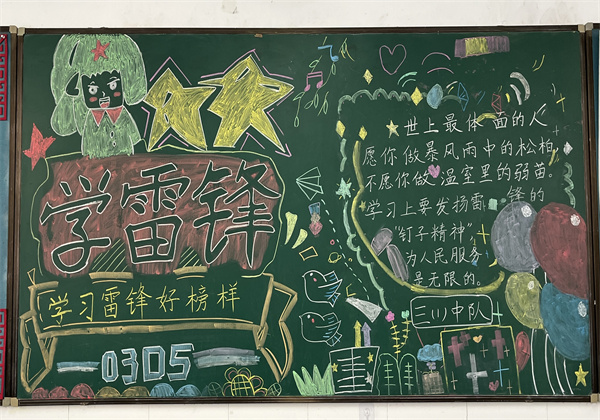 学雷锋
学习雷锋好榜样
0305
世上最体面的人
愿你做暴风雨中的松柏,
不愿你做温室里的弱苗。
学习上要发扬雷锋的
“钉子精神”
为人民服务
是无限的。
三川中队